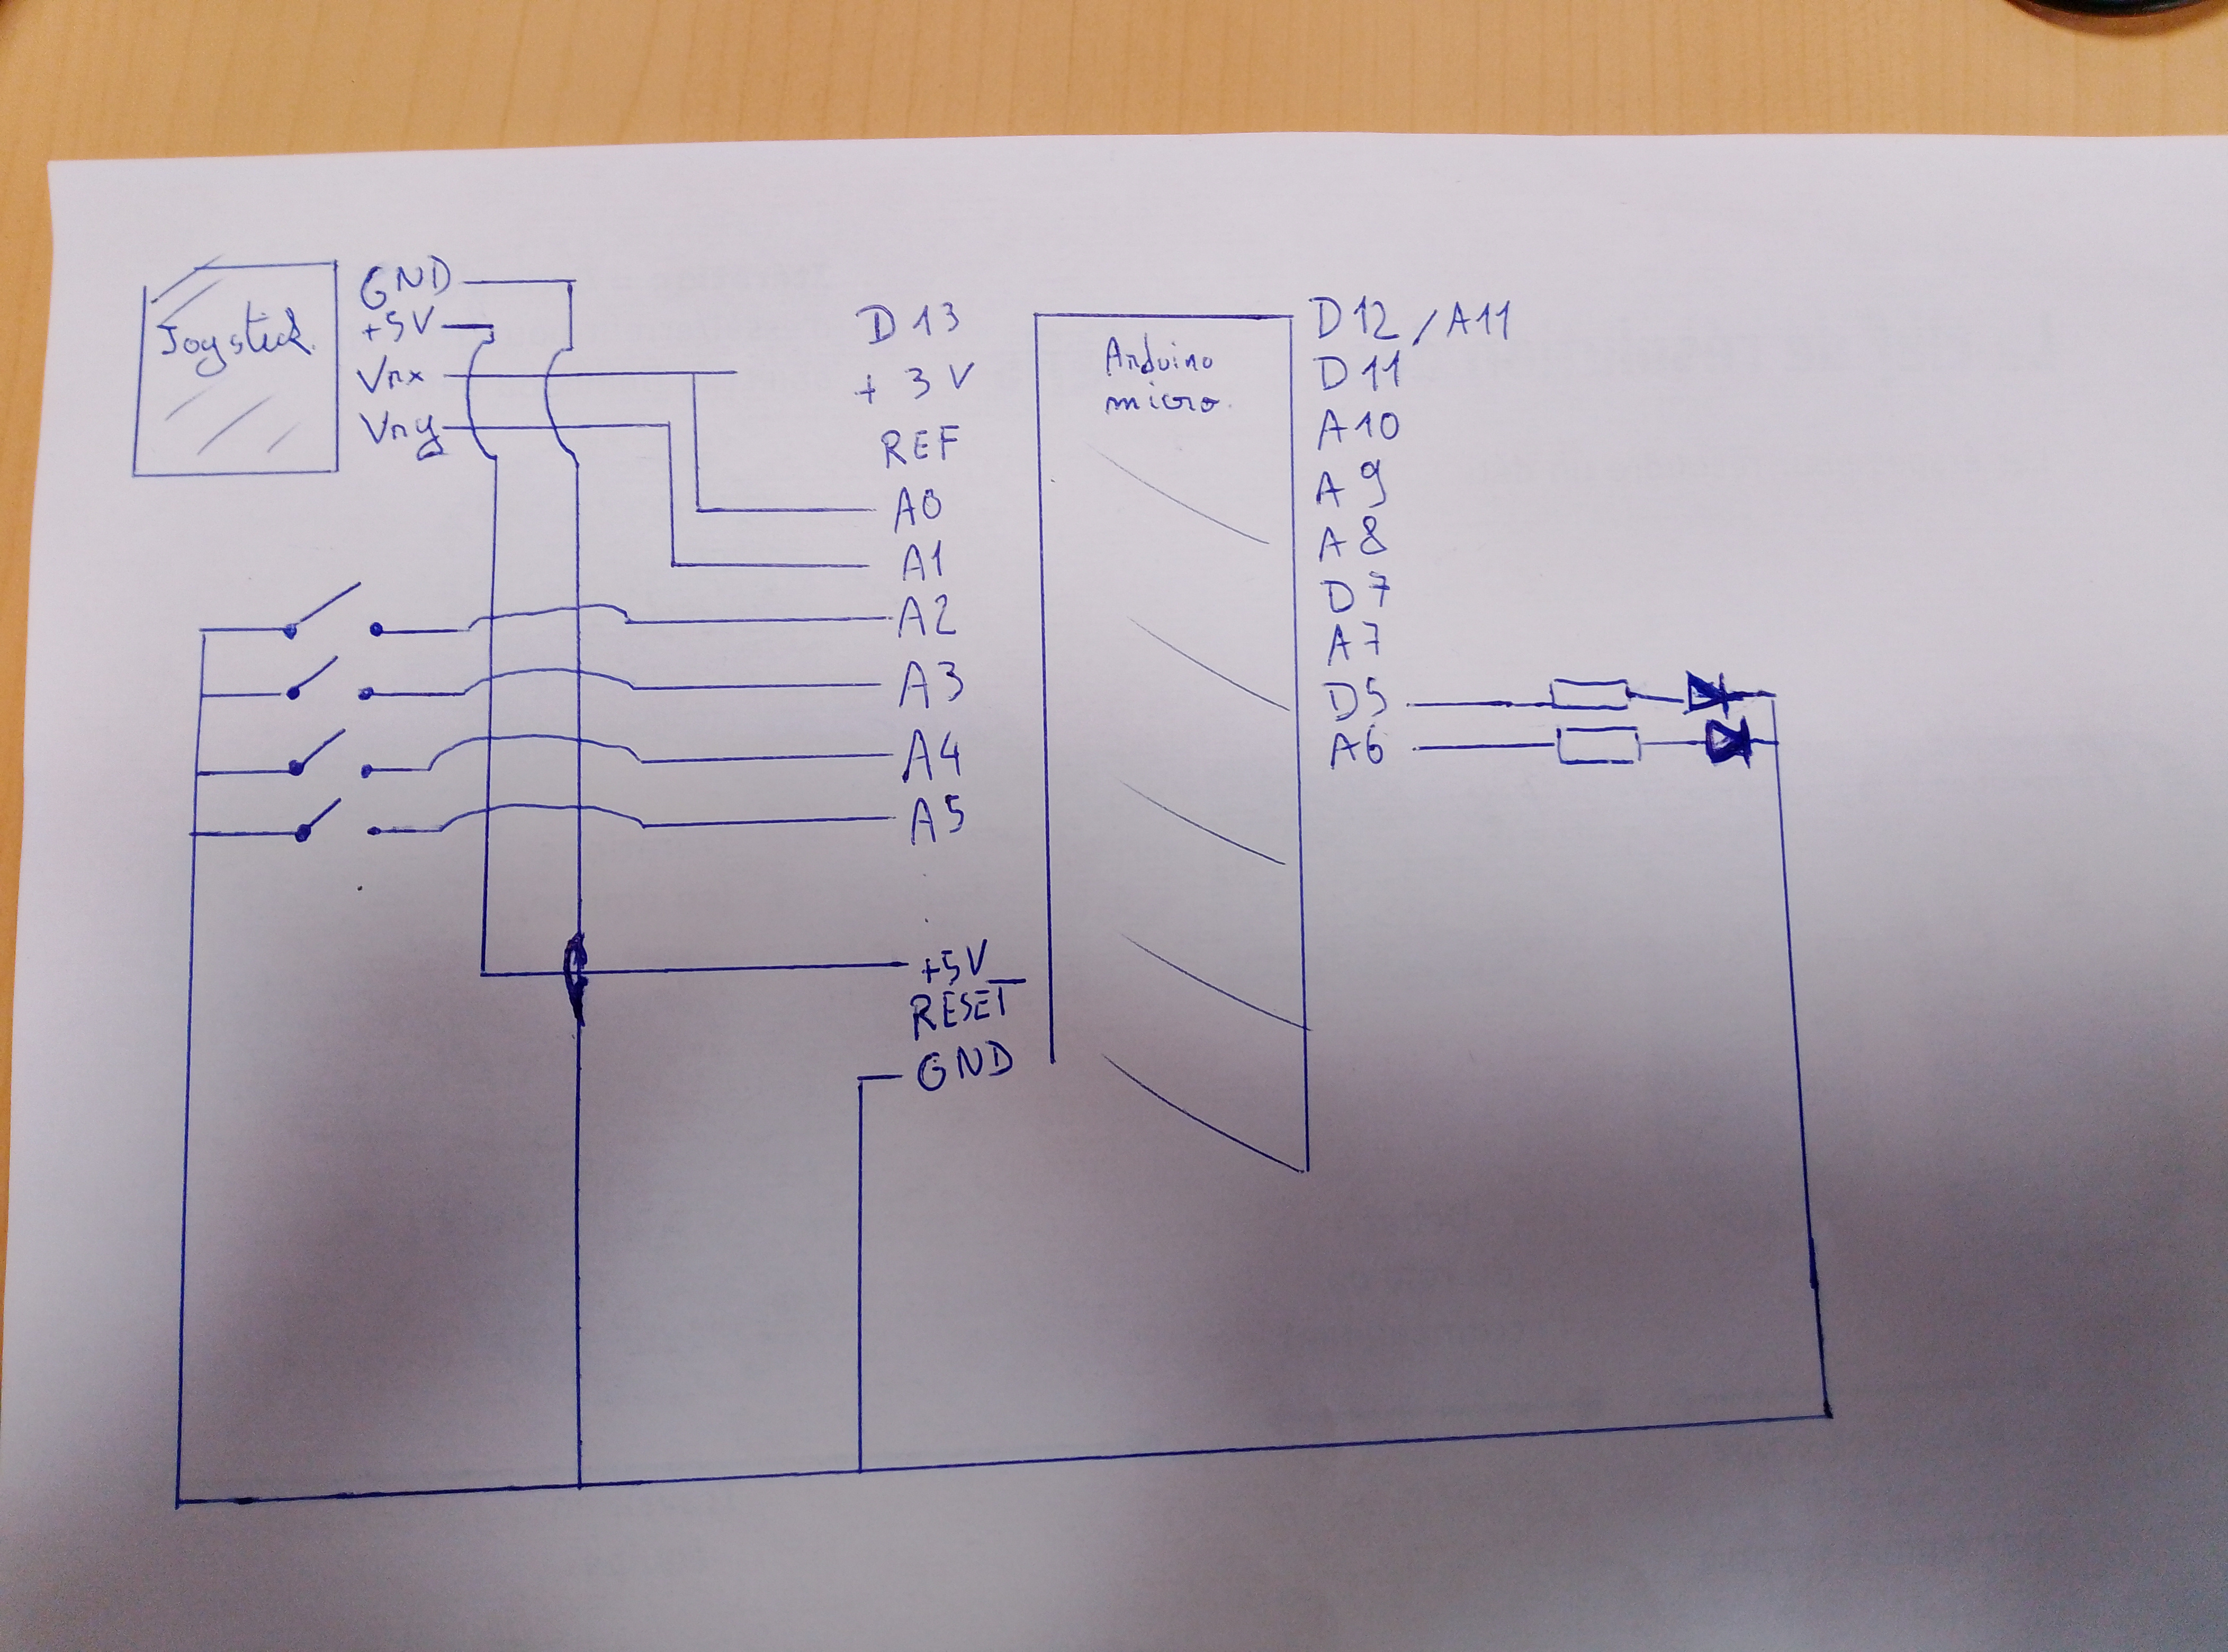 Joystick
GND
+5V
Vrx
Vry
D13
+3V
REF
A0
A1
A2
A3
A4
A5
+5V
RESET
GND
Arduino
micro
D12/A11
D11
A10
A9
A8
D7
A7
D5
A6